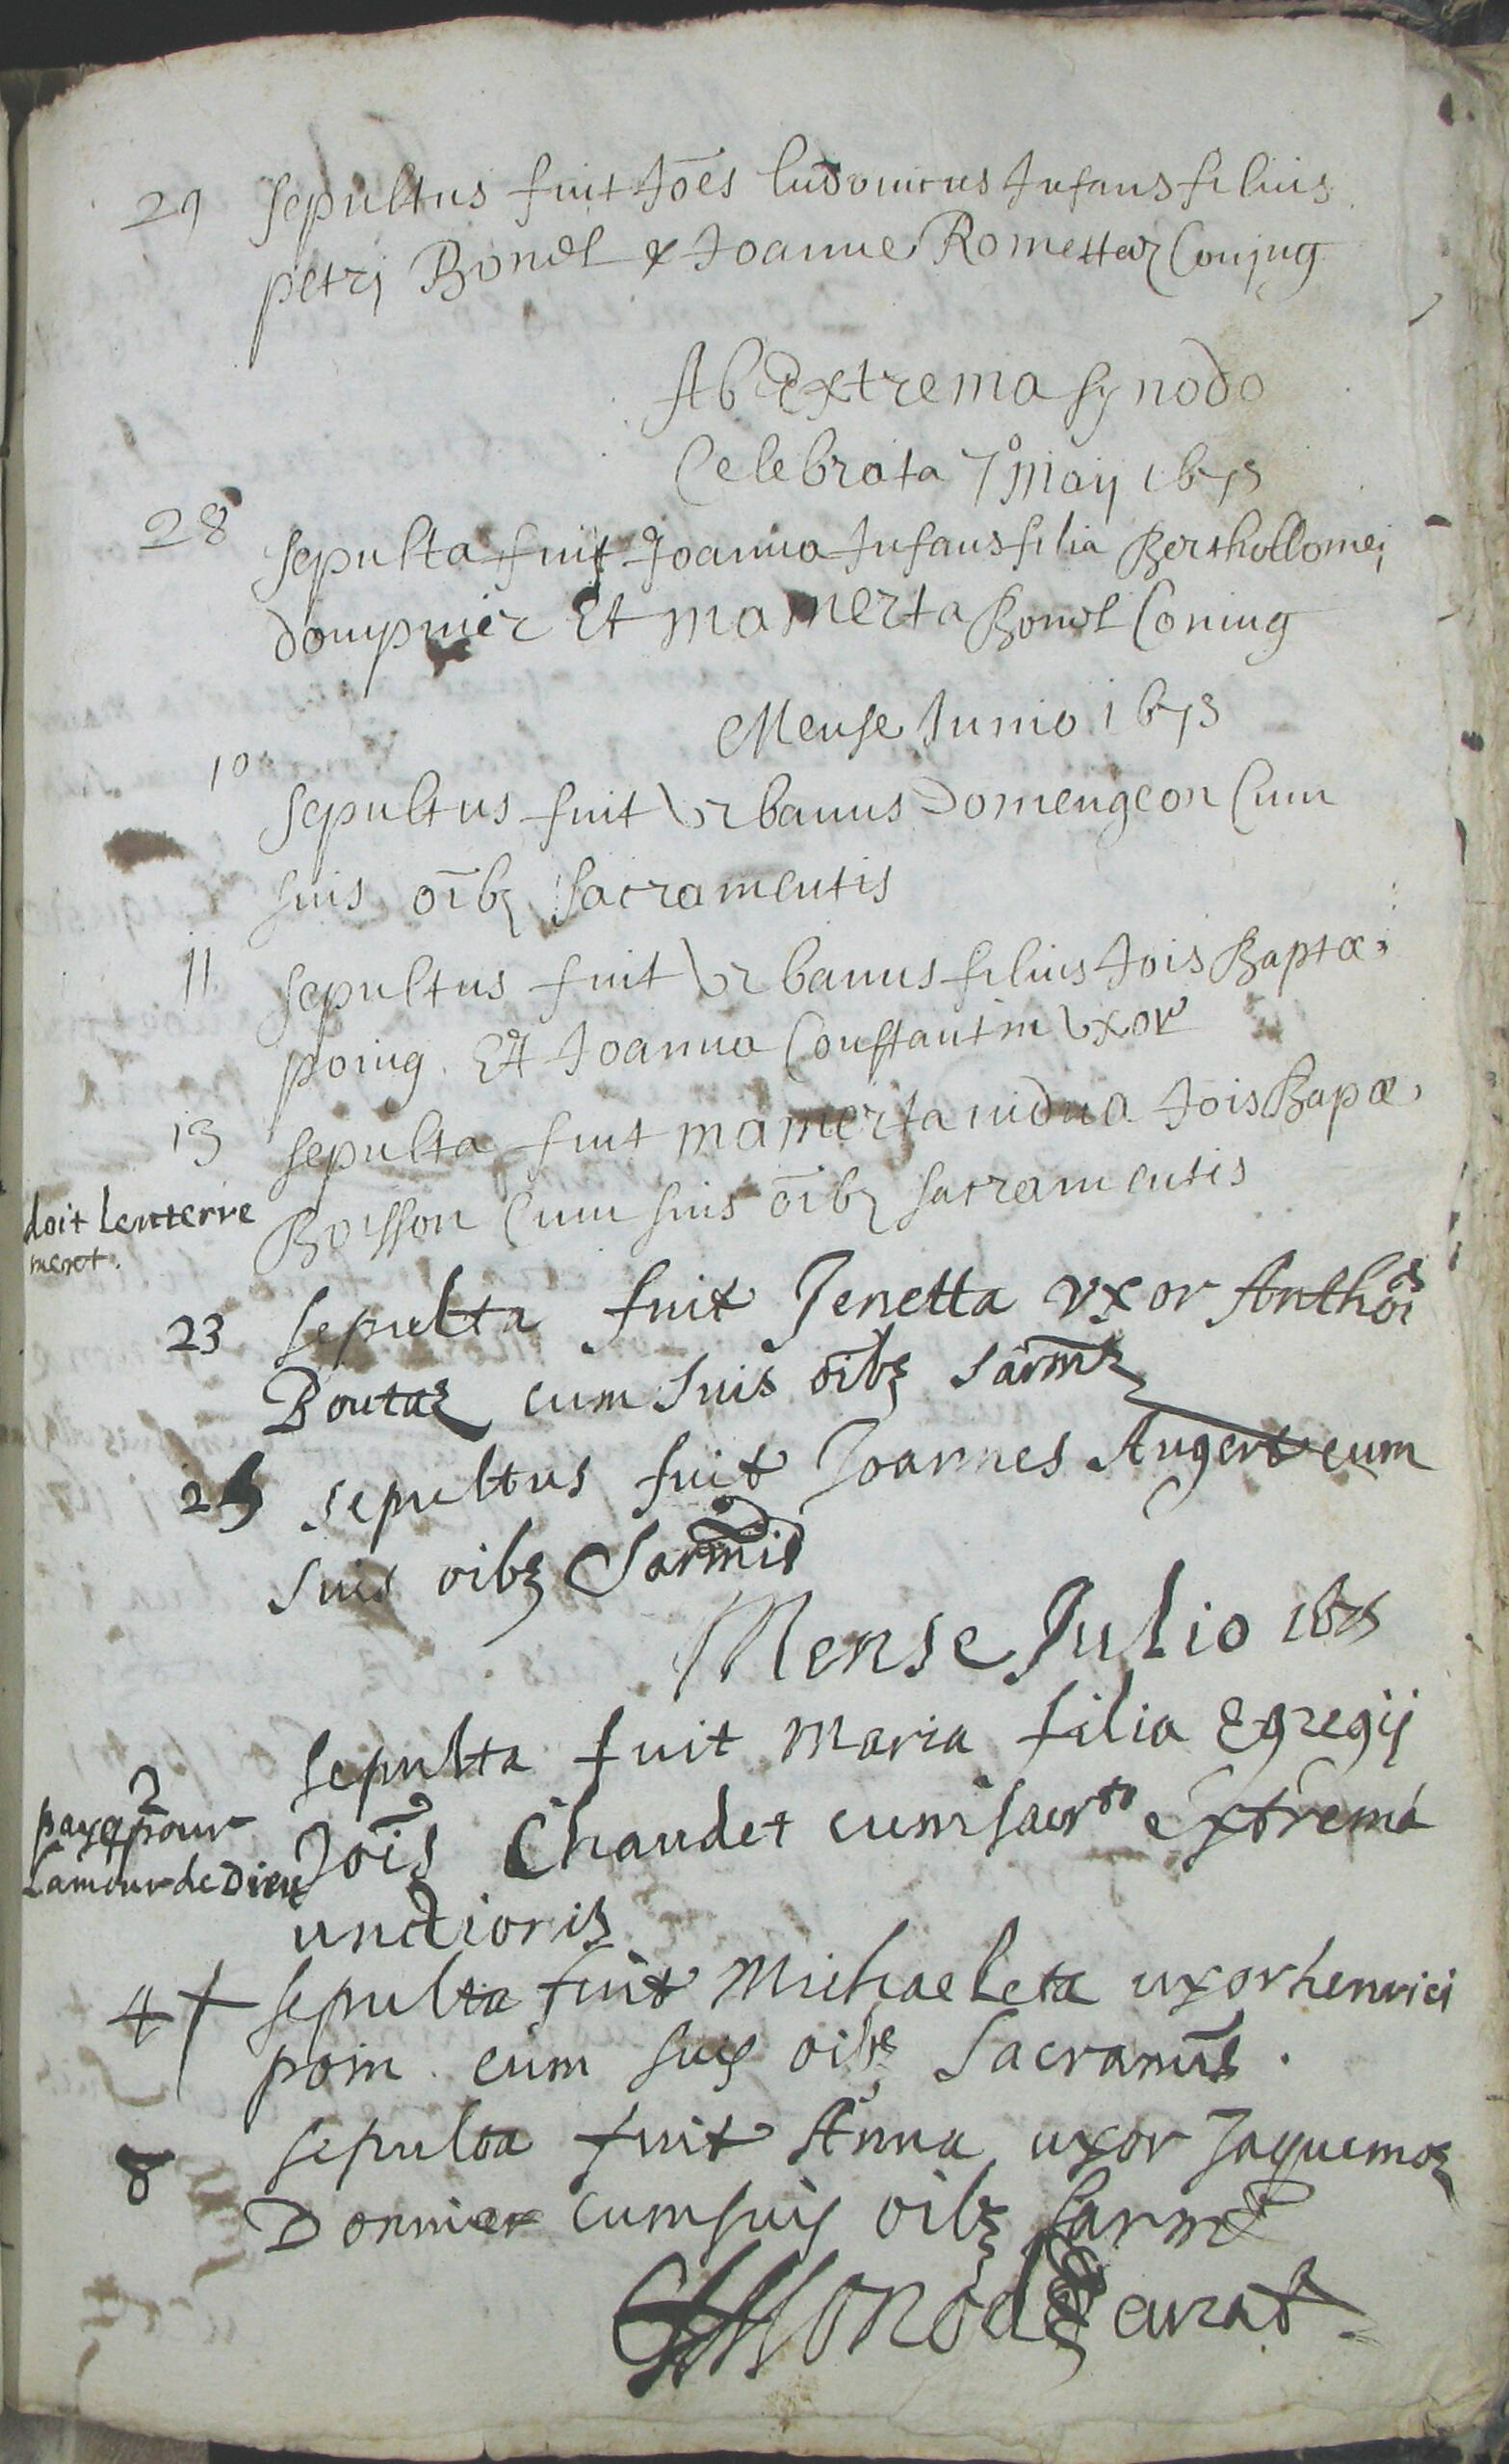 29 sepultus fuit Joes ludovicus Infans filius
petri Bondt & Joanne Romettaz Conjug
Ab Extrema synodo
Celebrata 7° May 1675
28 sepulta fuit Joanna Infans filia Berthollomei
Dompnier Et mamerta Bondt Coniug
Mense Junio 1675
10 sepultus fuit Urbanus Domengeon Cum
suis oibz sacramentis
11 sepultus fuit Urbanus filius Jois Baptæ
poing. Et Joanna Constantin Uxor
13 sepulta fuit mamerta vidua Jois Bapæ
Boisson Cum suis oibz sacramentis
doit lenterre
ment.
23 sepulta fuit Jenetta vxor Anthoi
Boutaz cum suis oibz sarmz
25 sepultus fuit Joannes Augert cum
suis oibz Sarmis
Mense Julio 1675
2 sepulta fuit Maria filia Egregij
Jois Chaudet cum sacrto extrema
unctionis
paye pour
Lamour de Dieu
4 sepulta fuit Michaeleta uxor henrici
poin. cum suis oibz Sacramts.
8 sepulta fuit Anna uxor Jaquemoz
Donnier cum suis oibz sarmz
curat